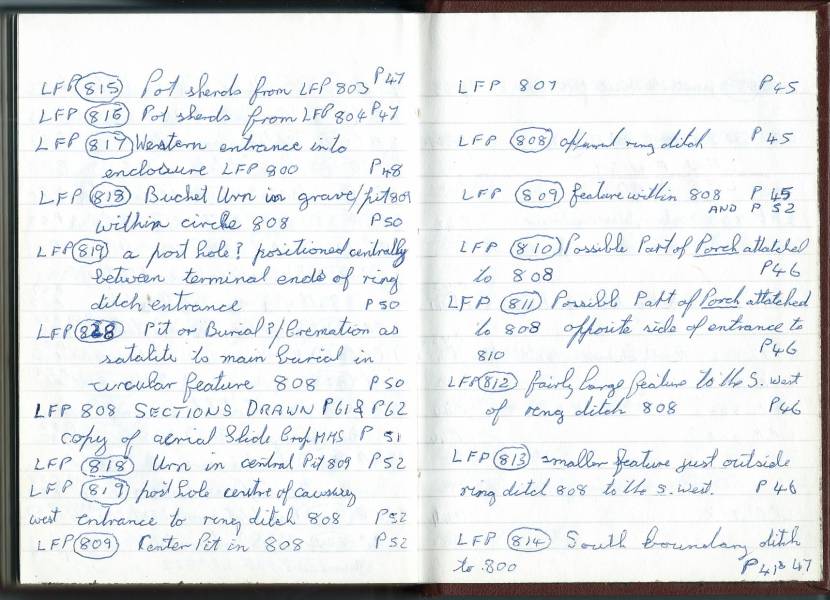 LFP 815 Pot sherds from LFP 803 P47
LFP 816 Pot sherds from LFP 804 P47
LFP 817 Western entrance into
enclosure LFP 800 P48
LFP 818 Bucket Urn in grave/pit 809
within circle 808 P50
LFP 819 a post hole? positioned centrally
between terminal ends of ring
ditch entrance P50
LFP Pit or Burial?/Cremation as
satalite to main burial in
circular feature 808 P50
LFP 808 SECTIONS DRAWN P61 & P62
copy of aerial Slide MHS P 51
LFP 818 Urn in central Pit 809 P52
LFP 819 post hole centre of causwey
west entrance to ring ditch 808 P52
LFP 809 Center Pit in 808 P52
LFP 807 P45
LFP 808 ring ditch P45
LFP 809 feature within 808 P 45
AND P 52
LFP 810 Possible Part of Porch attatched
to 808 P46
LFP 811 Possible Part of Porch attatched
to 808 opposite side of entrance to
810 P46
LFP 812 fairly large feature to the S. West
of ring ditch 808 P46
LFP 813 smaller feature just outside
ring ditch 808 to the S. West. P46
LFP 814 South boundary ditch
to 800 P41 & 47